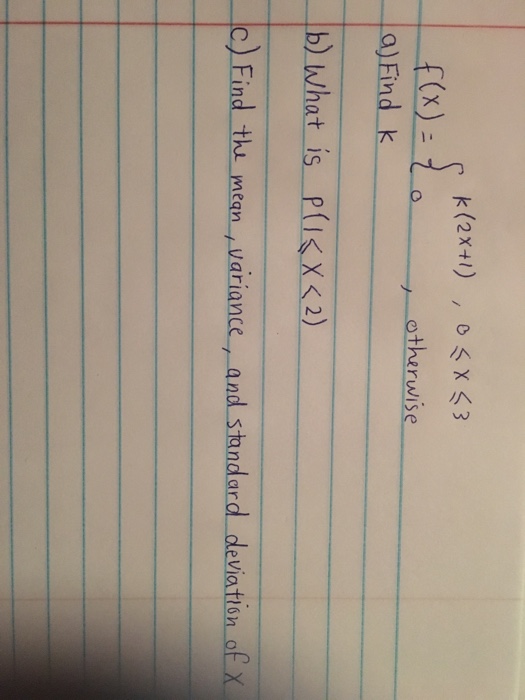 f(x) = { k(2x+1) , 0 ≤ x ≤ 3
0 , otherwise
a) Find k
b) What is p(1 ≤ X < 2)
c) Find the mean, variance, and standard deviation of X